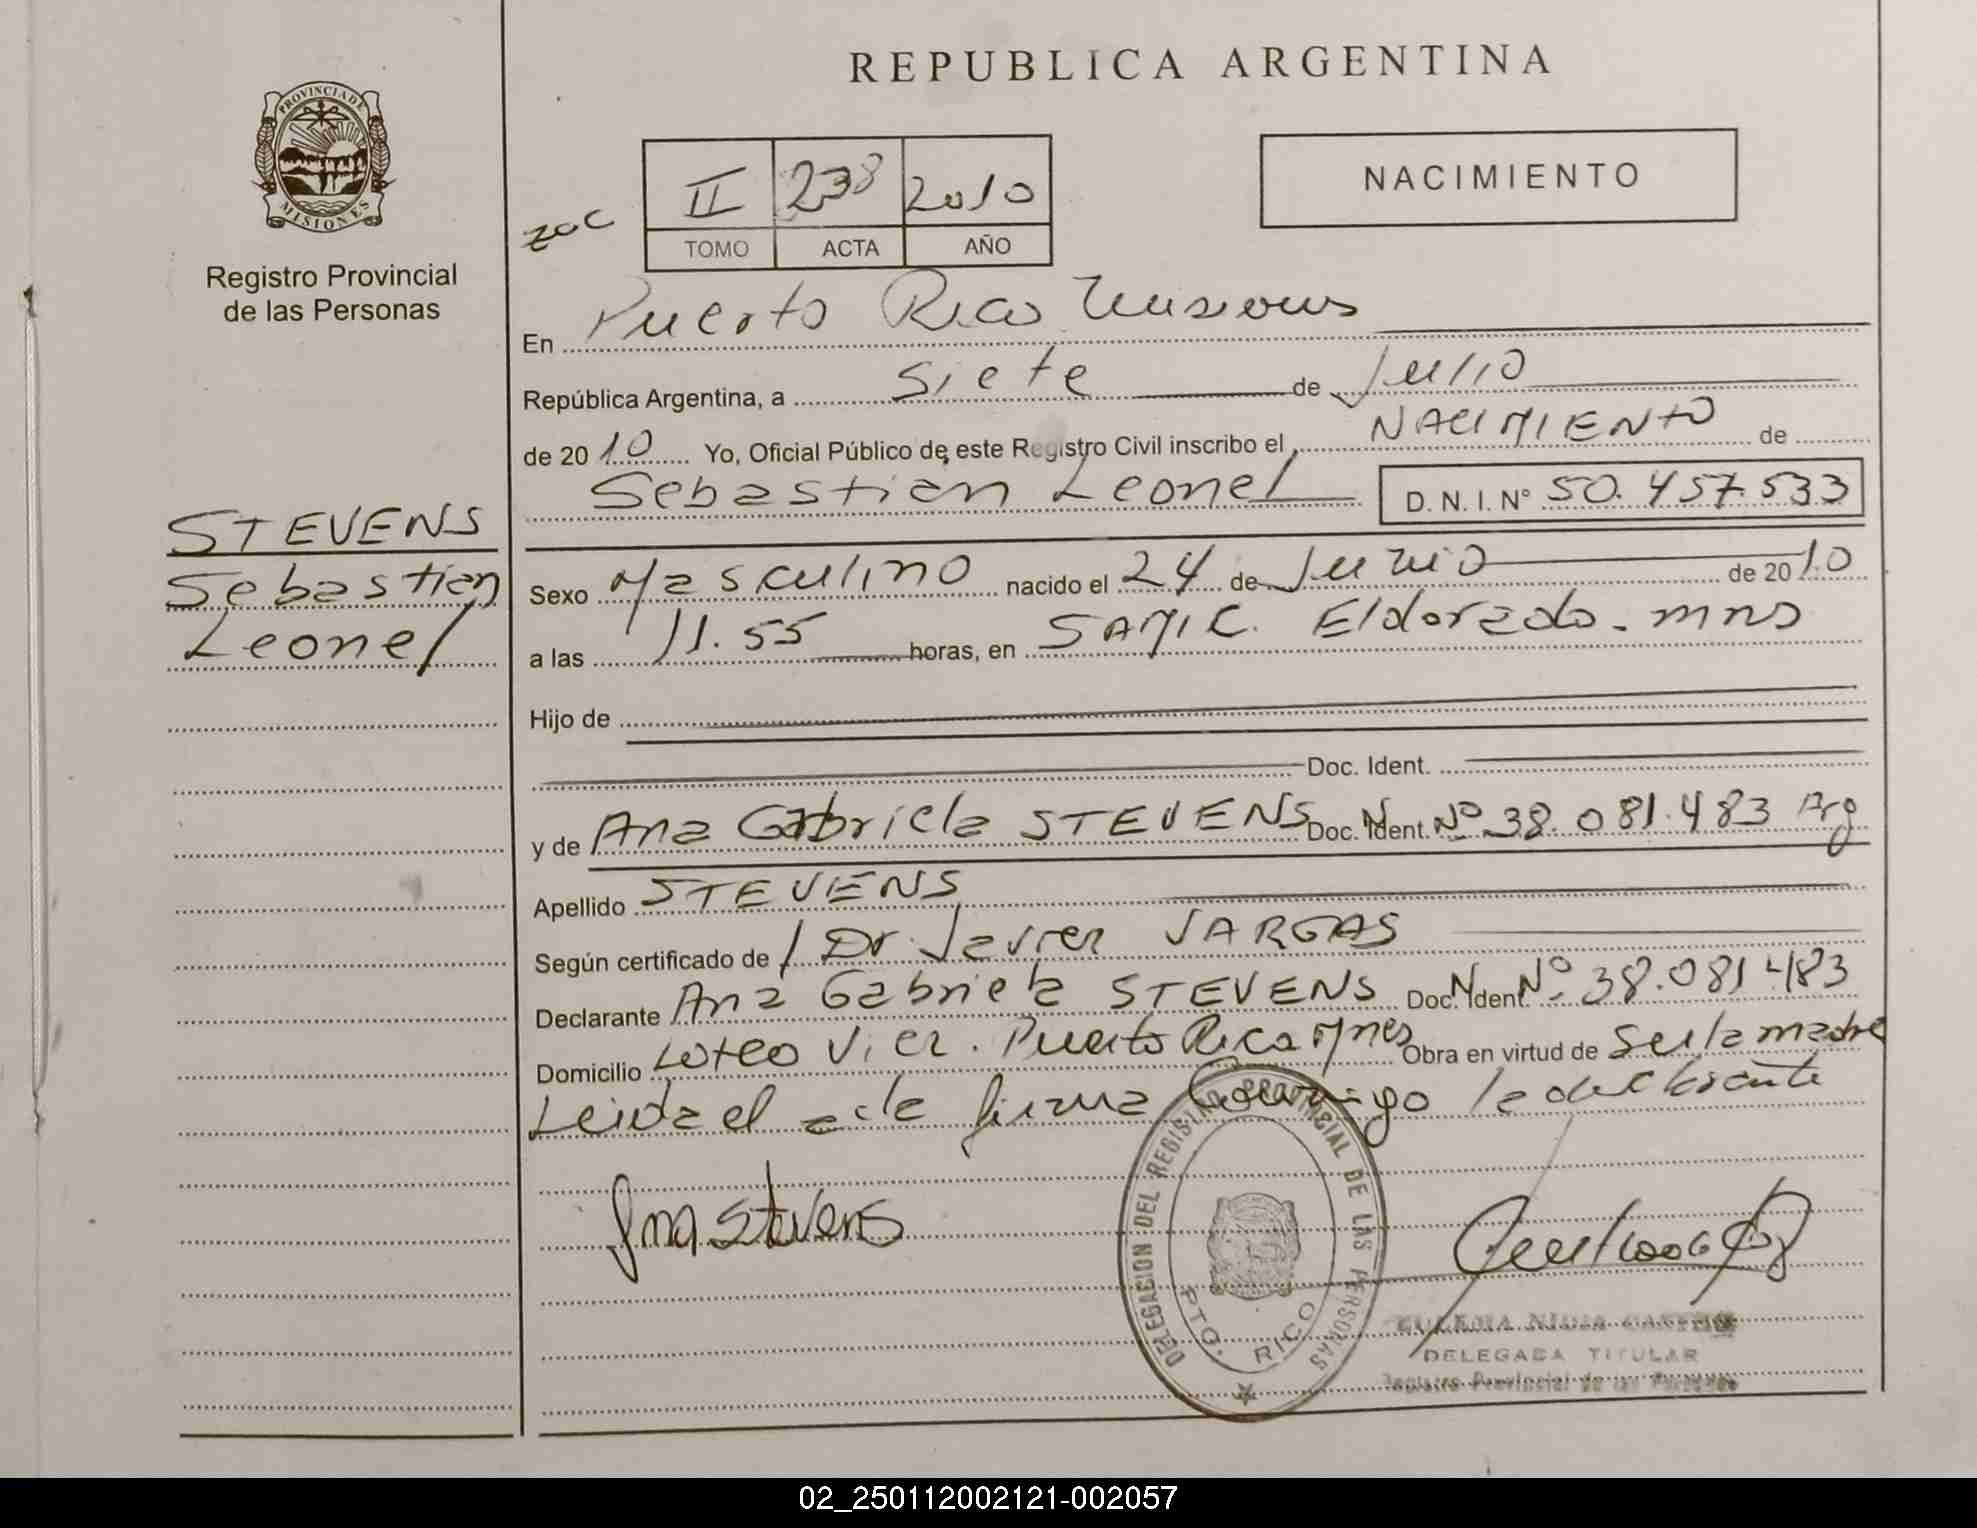 REPUBLICA ARGENTINA
PROVINCIA DE
MISIONES
Registro Provincial
de las Personas
II 238 2010
TOMO ACTA AÑO
NACIMIENTO
En Puerto Rico Misiones
República Argentina, a siete de Julio
de 2010 Yo, Oficial Público de este Registro Civil inscribo el NACIMIENTO de
Sebastian Leonel D. N. I. Nº 50.457.533
STEVENS
Sebastian
Leonel
Sexo Masculino nacido el 24 de Junio de 2010
a las 11.55 horas, en SAMIC. Eldorado. mns
Hijo de
Doc. Ident.
y de Ana Gabriela STEVENS Doc. Ident. Nº 38.081.483 Arg
Apellido STEVENS
Según certificado de Dr. Javier VARGAS
Declarante Ana Gabriela STEVENS Doc. Ident. Nº 38.081.483
Domicilio Loteo Vier. Puerto Rico Mnes Obra en virtud de Ser la madre
Leida el acta firma conmigo la declarante
Ana Stevens
DELEGACION DEL REGISTRO PROVINCIAL DE LAS PERSONAS
PTO. RICO
DELEGADA TITULAR
Registro Provincial de las Personas
02_250112002121-002057